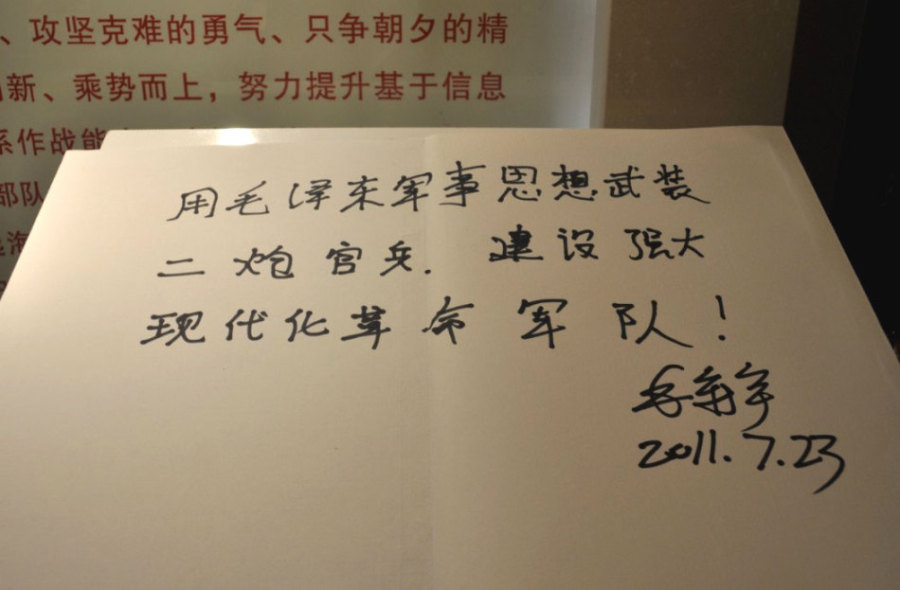 、攻坚克难的勇气、只争朝夕的精
新、乘势而上，努力提升基于信息
系作战能
部队
用毛泽东军事思想武装
二炮官兵．建设强大
现代化革命军队！
毛新宇
2011.7.23